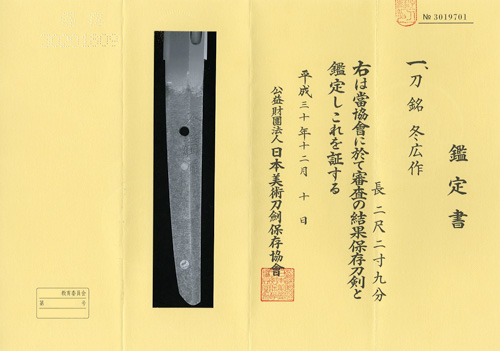 № 3019701
鑑定書
一、刀 銘 冬広作
長 二尺二寸九分
右は當協會に於て審査の結果保存刀剣と
鑑定しこれを証する
平成三十年十二月 十 日
公益財團法人 日本美術刀劍保存協會
教育委員会
第 号